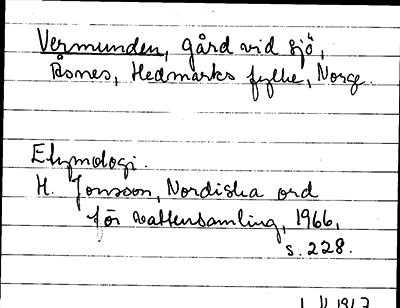 Vermunden, gård vid sjö,
Åsnes, Hedmarks fylke, Norge.
Etymologi.
H. Jonsson, Nordiska ord
för vattensamling, 1966,
s. 228.